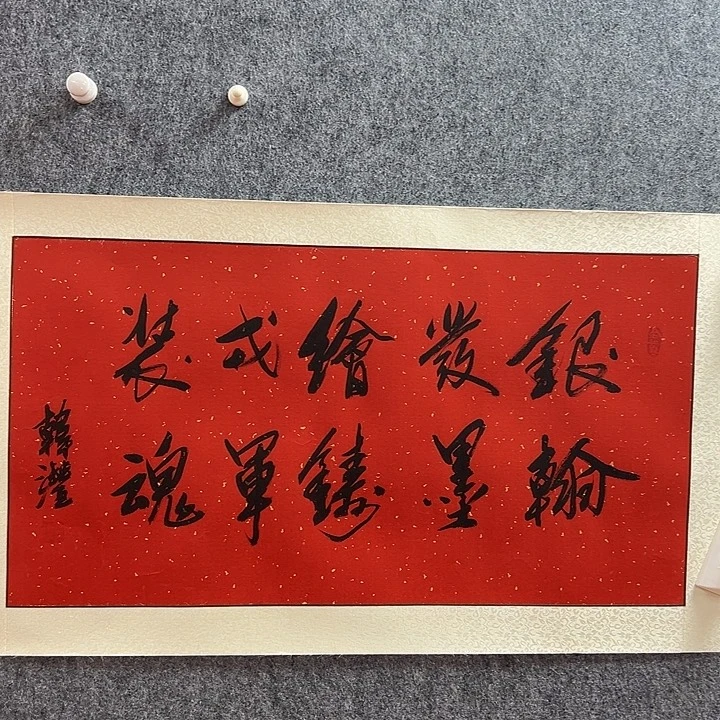 銀發繪戎裝
翰墨鑄軍魂
韓灃